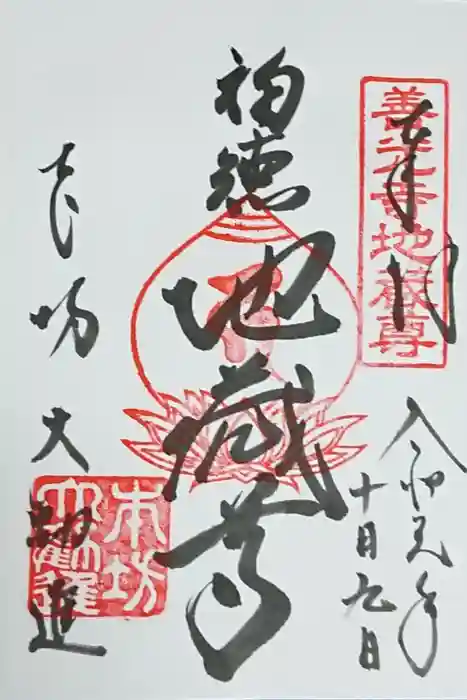 善光寺地蔵尊
奉拝
令和元年
十月九日
福徳
地蔵尊
本坊大勧進
本坊
大勧進